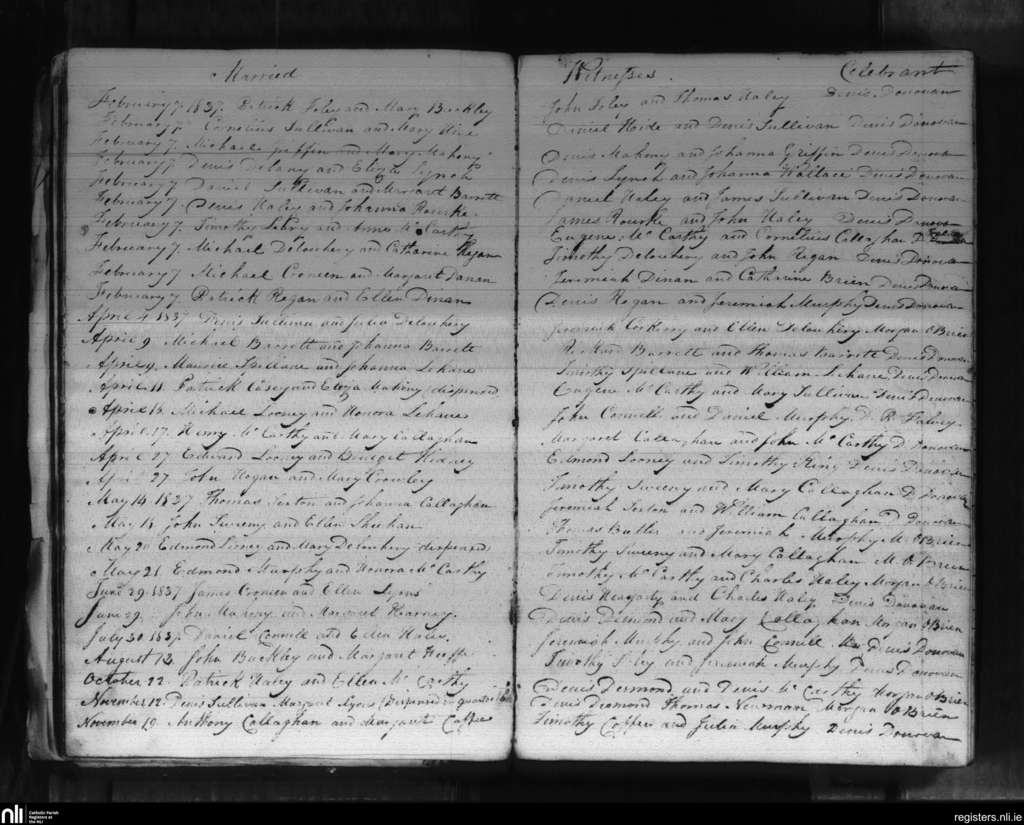 Married
February 7. 1837. Patrick Foley and Mary Buckley
February 7. Cornelius Sullivan and Mary
February 7. Michael Griffin and Mary Mahony
February 7. Denis Delany and Eliza Lynch
February 7. Daniel Sullivan and Margaret Barrett
February 7. Denis Haley and Johanna Rourke.
February 7. Timothy and Anne Mc Carthy
February 7. Michael Delouhery and Catharine Regan
February 7. Michael Croneen and Margaret Danan
February 7. Patrick Regan and Ellen Dinan
April 4 1837 Denis Sullivan and Julia Delouhery
April 9 Michael Barrett and Johanna Barrett
April 9. Maurice Spillane and Johanna Lehane
April 11. Patrick Casey and Eliza Mahony (dispensed
April 16. Michael Looney and Honora Lehane
April 17. Henry Mc Carthy and Mary Callaghan
April 27 Edward Looney and Bridget
April 27 John Hogan and Mary Crowley
May 14 1837 Thomas Sexton and Johanna Callaghan
May John Sweeny and Ellen Sheehan
May 20 Edmond Looney and Mary Delouhery dispensed
May 21. Edmond Murphy and Honora Mc Carthy
June 29. 1837 James Cronien and Ellen Lyons
June 29. John Mahony and Margaret Kearney.
July 30 1837. Daniel Connell and Ellen
August 12 John Buckley and Margaret Keeffe
October 22. Patrick Haley and Ellen Mc Carthy
November 12. Denis Sullivan Margaret Lyons (Dispensed in
November 19. Anthony Callaghan and Margaret Coppes
Witnesses.
Celebrant
John Foley and Thomas Haley Denis Donovan
Daniel and Denis Sullivan Denis Donovan
Denis Mahony and Johanna Griffin Denis Donovan
Denis Lynch and Johanna Wallace Denis Donovan
Daniel Haley and James Sullivan Denis Donovan
James Rourke and John Haley Denis Donovan
Eugene Mc Carthy and Cornelius Callaghan D.
Timothy Delouhery and John Regan Denis Donovan
Jeremiah Dinan and Catharine Brien Denis Donovan
Denis Regan and Jeremiah Murphy Denis Donovan
Jeremiah Corkery and Ellen Delouhery Morgan O Brien
Barrett and Thomas Barrett Denis Donovan
Timothy Spillane and William Lehane Denis Donovan
Eugene Mc Carthy and Mary Sullivan Denis Donovan
John Connell and Daniel Murphy. D. R. Falvey.
Margaret Callaghan and John Mc Carthy D Donovan
Edmond Looney and Timothy Ring Denis Donovan
Timothy Sweeny and Mary Callaghan D. Donovan
Jeremiah Sexton and William Callaghan D Donovan
Thomas Butler and Jeremiah Murphy M. O Brien
Timothy Sweeny and Mary Callaghan M. O Brien
Timothy Mc Carthy and Charles Haley Morgan O Brien
Denis Hegarty and Charles Haly Denis Donovan
Denis Desmond and Mary Callaghan Morgan O Brien
Jeremiah Murphy and John Connell Denis Donovan
Timothy and Jeremiah Murphy Denis Donovan
Denis Desmond and Denis Mc Carthy Morgan O Brien
Denis Desmond Thomas Newman Morgan O Brien
Timothy Coppes and Julia Murphy Denis Donovan
nli
Catholic Parish
Registers at
the NLI
registers.nli.ie